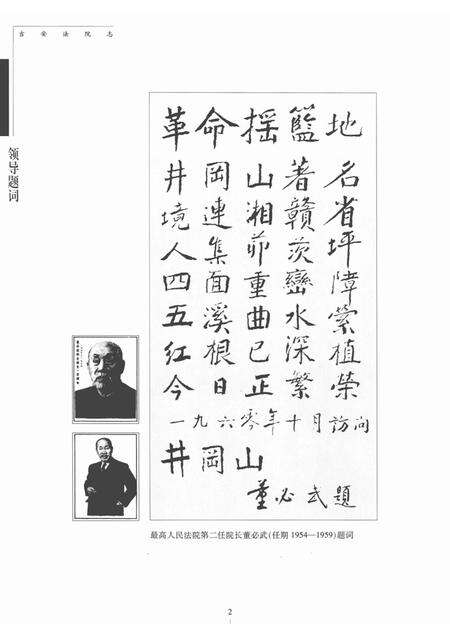 吉安法院志
领导题词
革命摇籃地
井岡山著名
境連湘贛省
人集茆茨坪
四面重巒障
五溪曲水縈
红根已深植
今日正繁榮
一九六零年十月訪问
井岡山
董必武題
最高人民法院第二任院长董必武(任期 1954—1959)题词
2